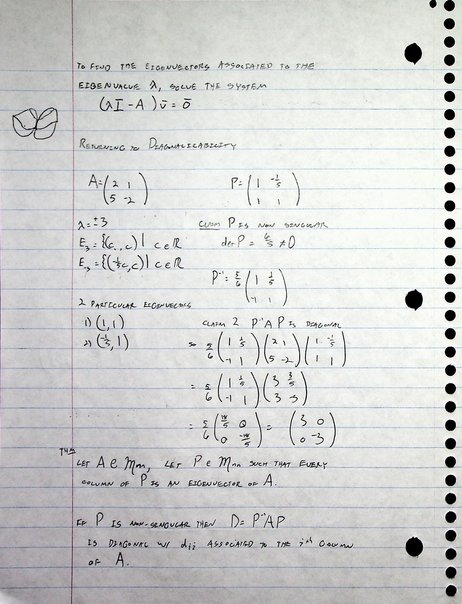 TO FIND THE EIGENVECTORS ASSOCIATED TO THE
EIGENVALUE λ, SOLVE THE SYSTEM
(λI - A)v̄ = ō
RETURNING TO DIAGONALICABILITY
A = (2 1; 5 -2) P = (1 -1/5; 1 1)
λ = ±3 CLAIM P IS NON SINGULAR
E₃ = {(c, c) | c ∈ ℝ det P = 6/5 ≠ 0
E₋₃ = {(-1/5c, c) | c ∈ ℝ
P⁻¹ = 5/6 (1 1/5; -1 1)
2 PARTICULAR EIGENVECTORS
1) (1, 1) CLAIM 2 P⁻¹AP IS DIAGONAL
2) (-1/5, 1) SO 5/6 (1 1/5; -1 1) (2 1; 5 -2) (1 -1/5; 1 1)
= 5/6 (1 1/5; -1 1) (3 3/5; 3 -3)
= 5/6 (18/5 0; 0 -18/5) = (3 0; 0 -3)
THM
LET A ∈ Mnn, LET P ∈ Mnn SUCH THAT EVERY
COLUMN OF P IS AN EIGENVECTOR OF A.
IF P IS NON-SINGULAR THEN D = P⁻¹AP
IS DIAGONAL W/ dii ASSOCIATED TO THE iᵗʰ COLUMN
OF A.